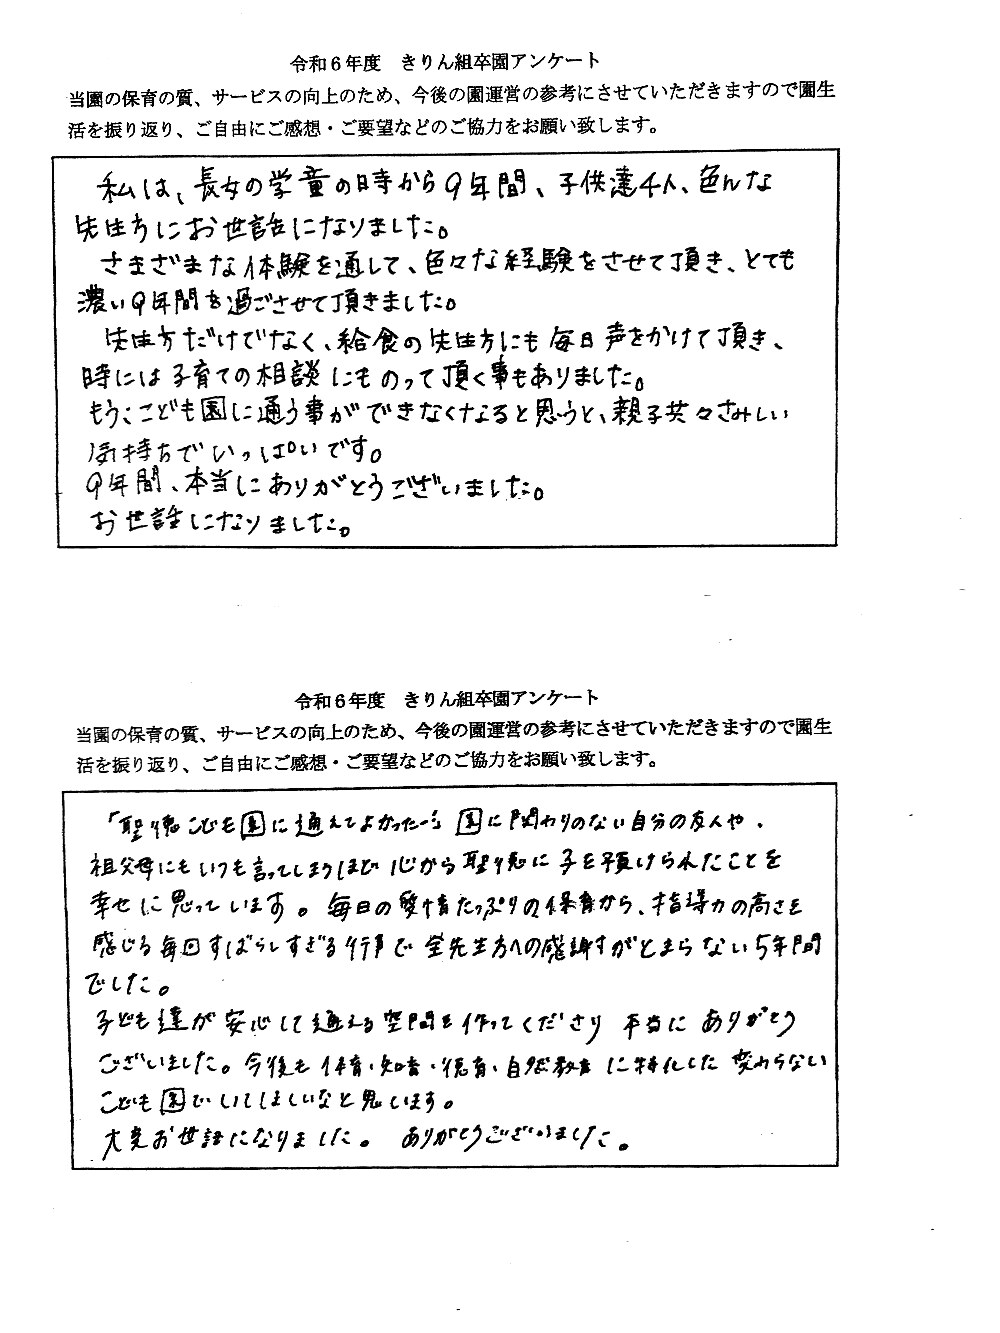 令和6年度　きりん組卒園アンケート
当園の保育の質、サービスの向上のため、今後の園運営の参考にさせていただきますので園生
活を振り返り、ご自由にご感想・ご要望などのご協力をお願い致します。
私は、長女の学童の時から9年間、子供達4人、色んな
先生方にお世話になりました。
さまざまな体験を通して、色々な経験をさせて頂き、とても
濃い9年間を過ごさせて頂きました。
先生方だけでなく、給食の先生方にも毎日声をかけて頂き、
時には子育ての相談にものって頂く事もありました。
もう、こども園に通う事ができなくなると思うと、親子共々さみしい
気持ちでいっぱいです。
9年間、本当にありがとうございました。
お世話になりました。
令和6年度　きりん組卒園アンケート
当園の保育の質、サービスの向上のため、今後の園運営の参考にさせていただきますので園生
活を振り返り、ご自由にご感想・ご要望などのご協力をお願い致します。
「聖徳こども園に通えてよかったー」園に関わりのない自分の友人や、
祖父母にもいつも言ってしまうほど心から聖徳に子を預けられたことを
幸せに思っています。毎日の愛情たっぷりの保育から、指導力の高さを
感じる毎回すばらしすぎる行事で全先生方への感謝がとまらない5年間
でした。
子ども達が安心して通える空間を作ってくださり本当にありがとう
ございました。今後も体育・知育・徳育・自然教育に特化した変わらない
こども園でいてほしいなと思います。
大変お世話になりました。ありがとうございました。